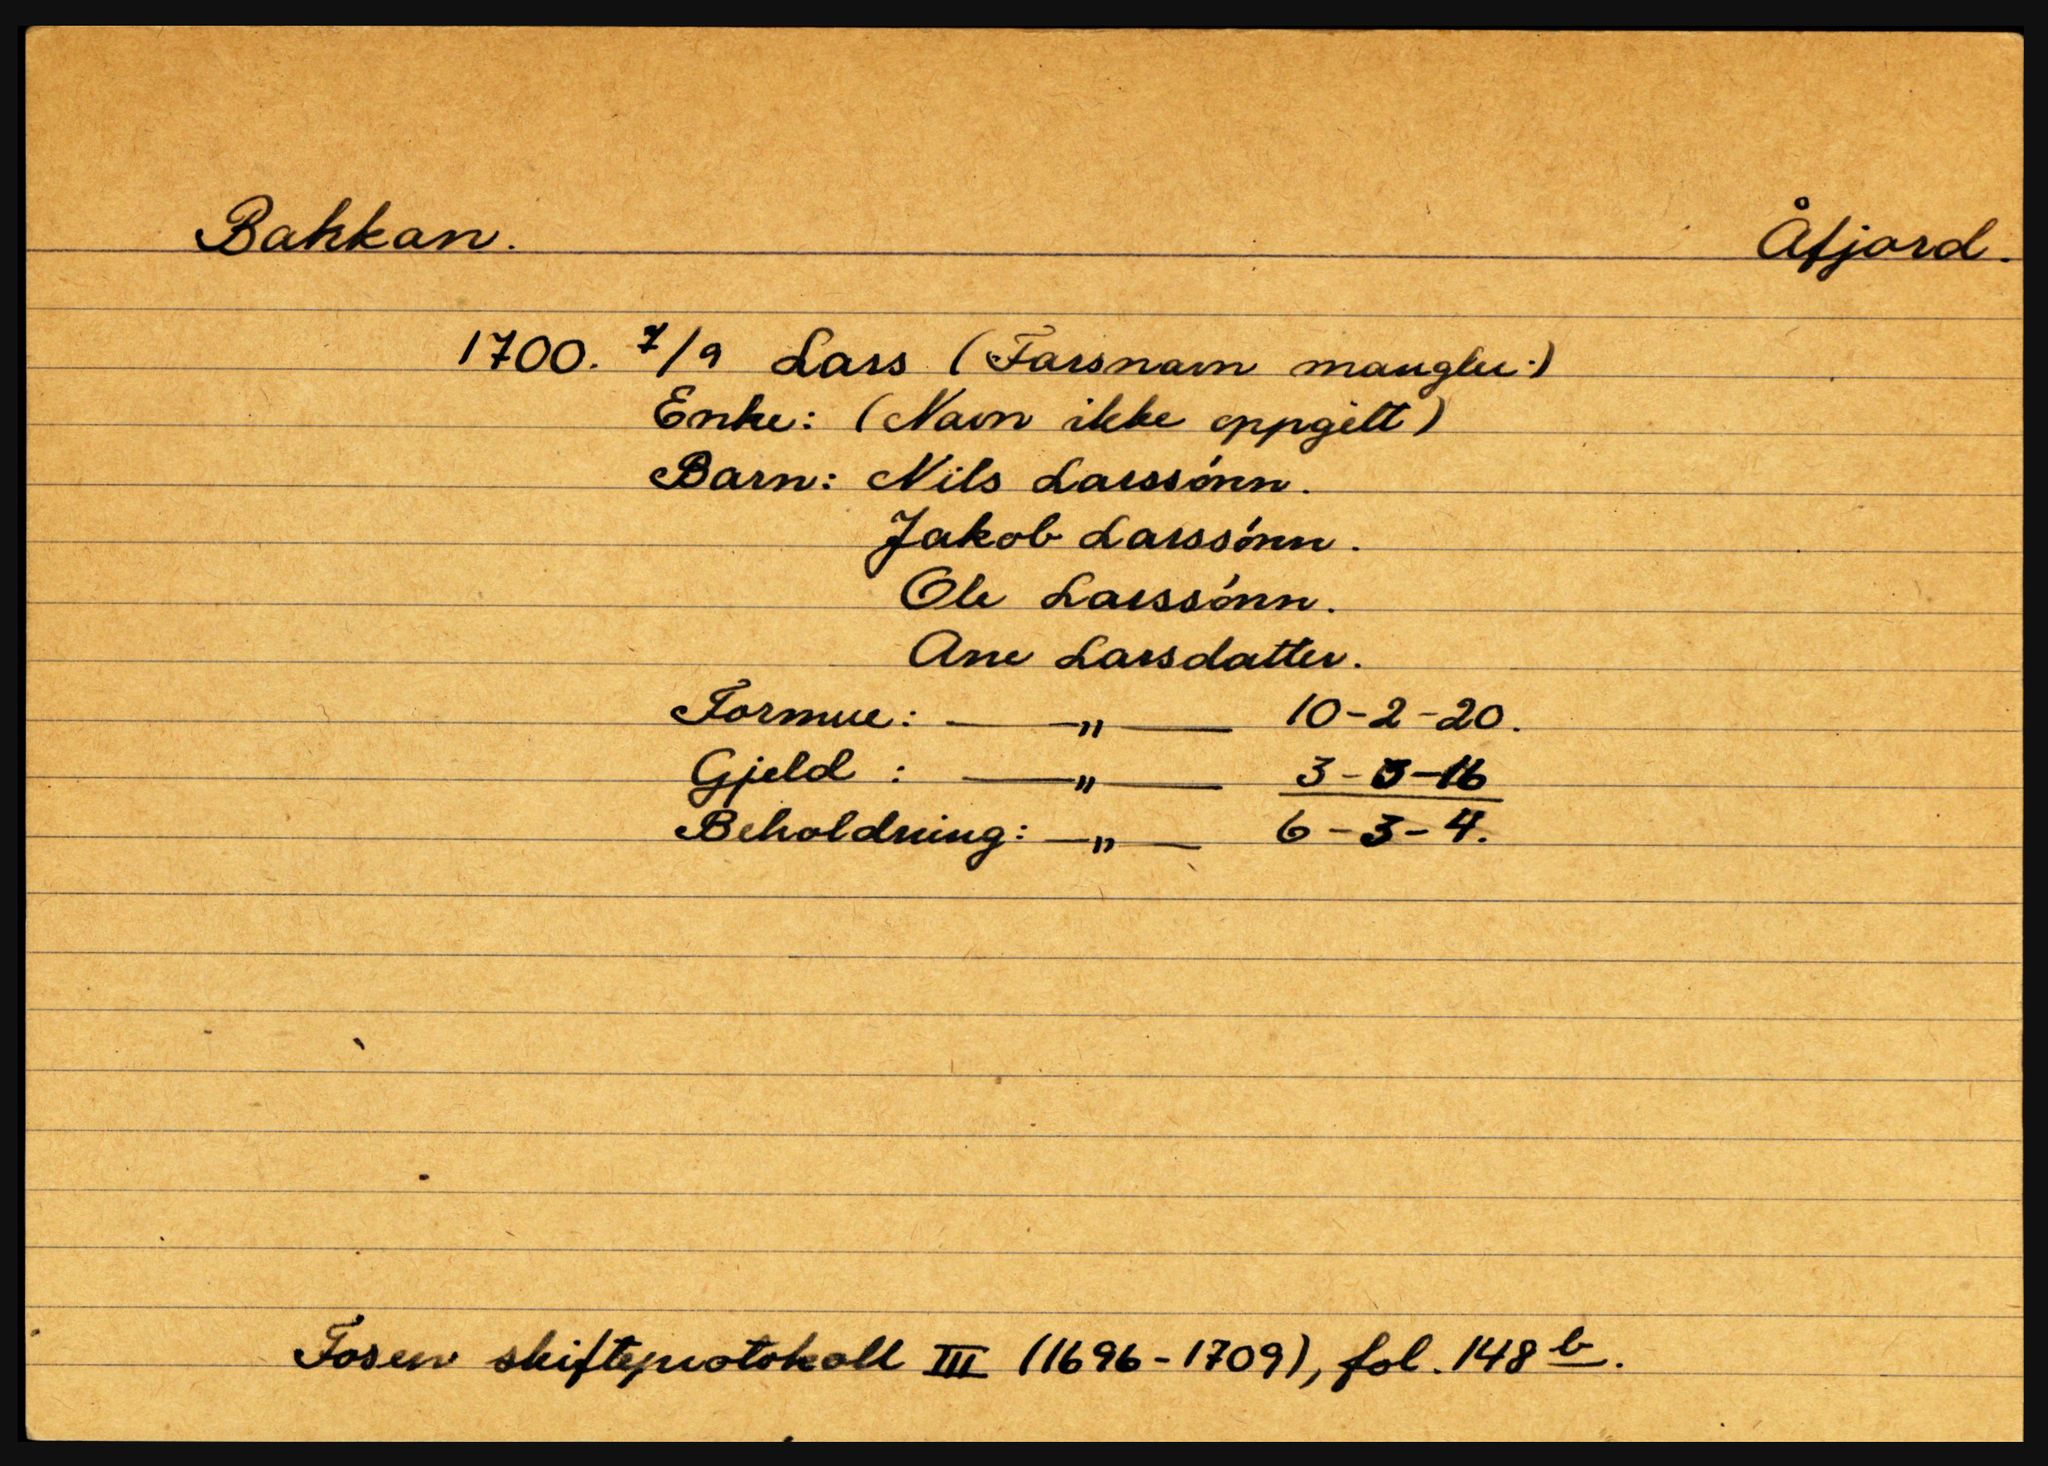 Bakkan. Åfjord.
1700. 7/9 Lars (Farsnavn mangler.)
Enke: (Navn ikke oppgitt)
Barn: Nils Larssønn.
Jakob Larssønn.
Ole Larssønn.
Ane Larsdatter.
Formue: — „ — 10-2-20.
Gjeld : — „ — 3-5-16
Beholdning: — „ — 6-3-4.
Fosen skifteprotokoll III (1696-1709), fol. 148 b.